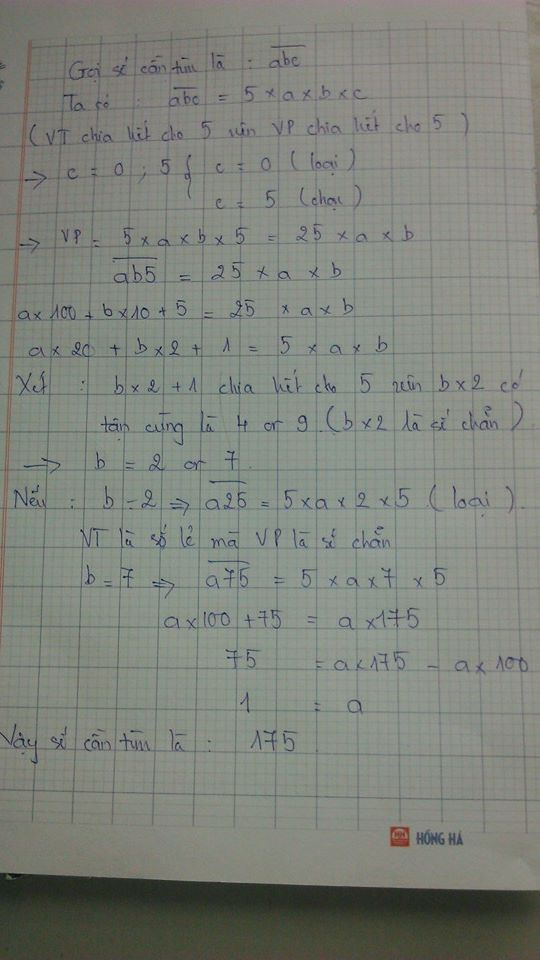 Gọi số cần tìm là : abc
Ta có : abc = 5 x a x b x c
( VT chia hết cho 5 nên VP chia hết cho 5 )
→ c = 0 ; 5 { c = 0 ( loại )
c = 5 (chọn)
→ VP = 5 x a x b x 5 = 25 x a x b
ab5 = 25 x a x b
a x 100 + b x 10 + 5 = 25 x a x b
a x 20 + b x 2 + 1 = 5 x a x b
Xét : b x 2 + 1 chia hết cho 5 nên b x 2 có
tận cùng là 4 or 9. ( b x 2 là số chẵn )
→ b = 2 or 7.
Nếu : b = 2 => a25 = 5 x a x 2 x 5 ( loại ).
VT là số lẻ mà VP là số chẵn
b = 7 => a75 = 5 x a x 7 x 5
a x 100 + 75 = a x 175
75 = a x 175 - a x 100
1 = a
Vậy số cần tìm là : 175
HỒNG HÀ